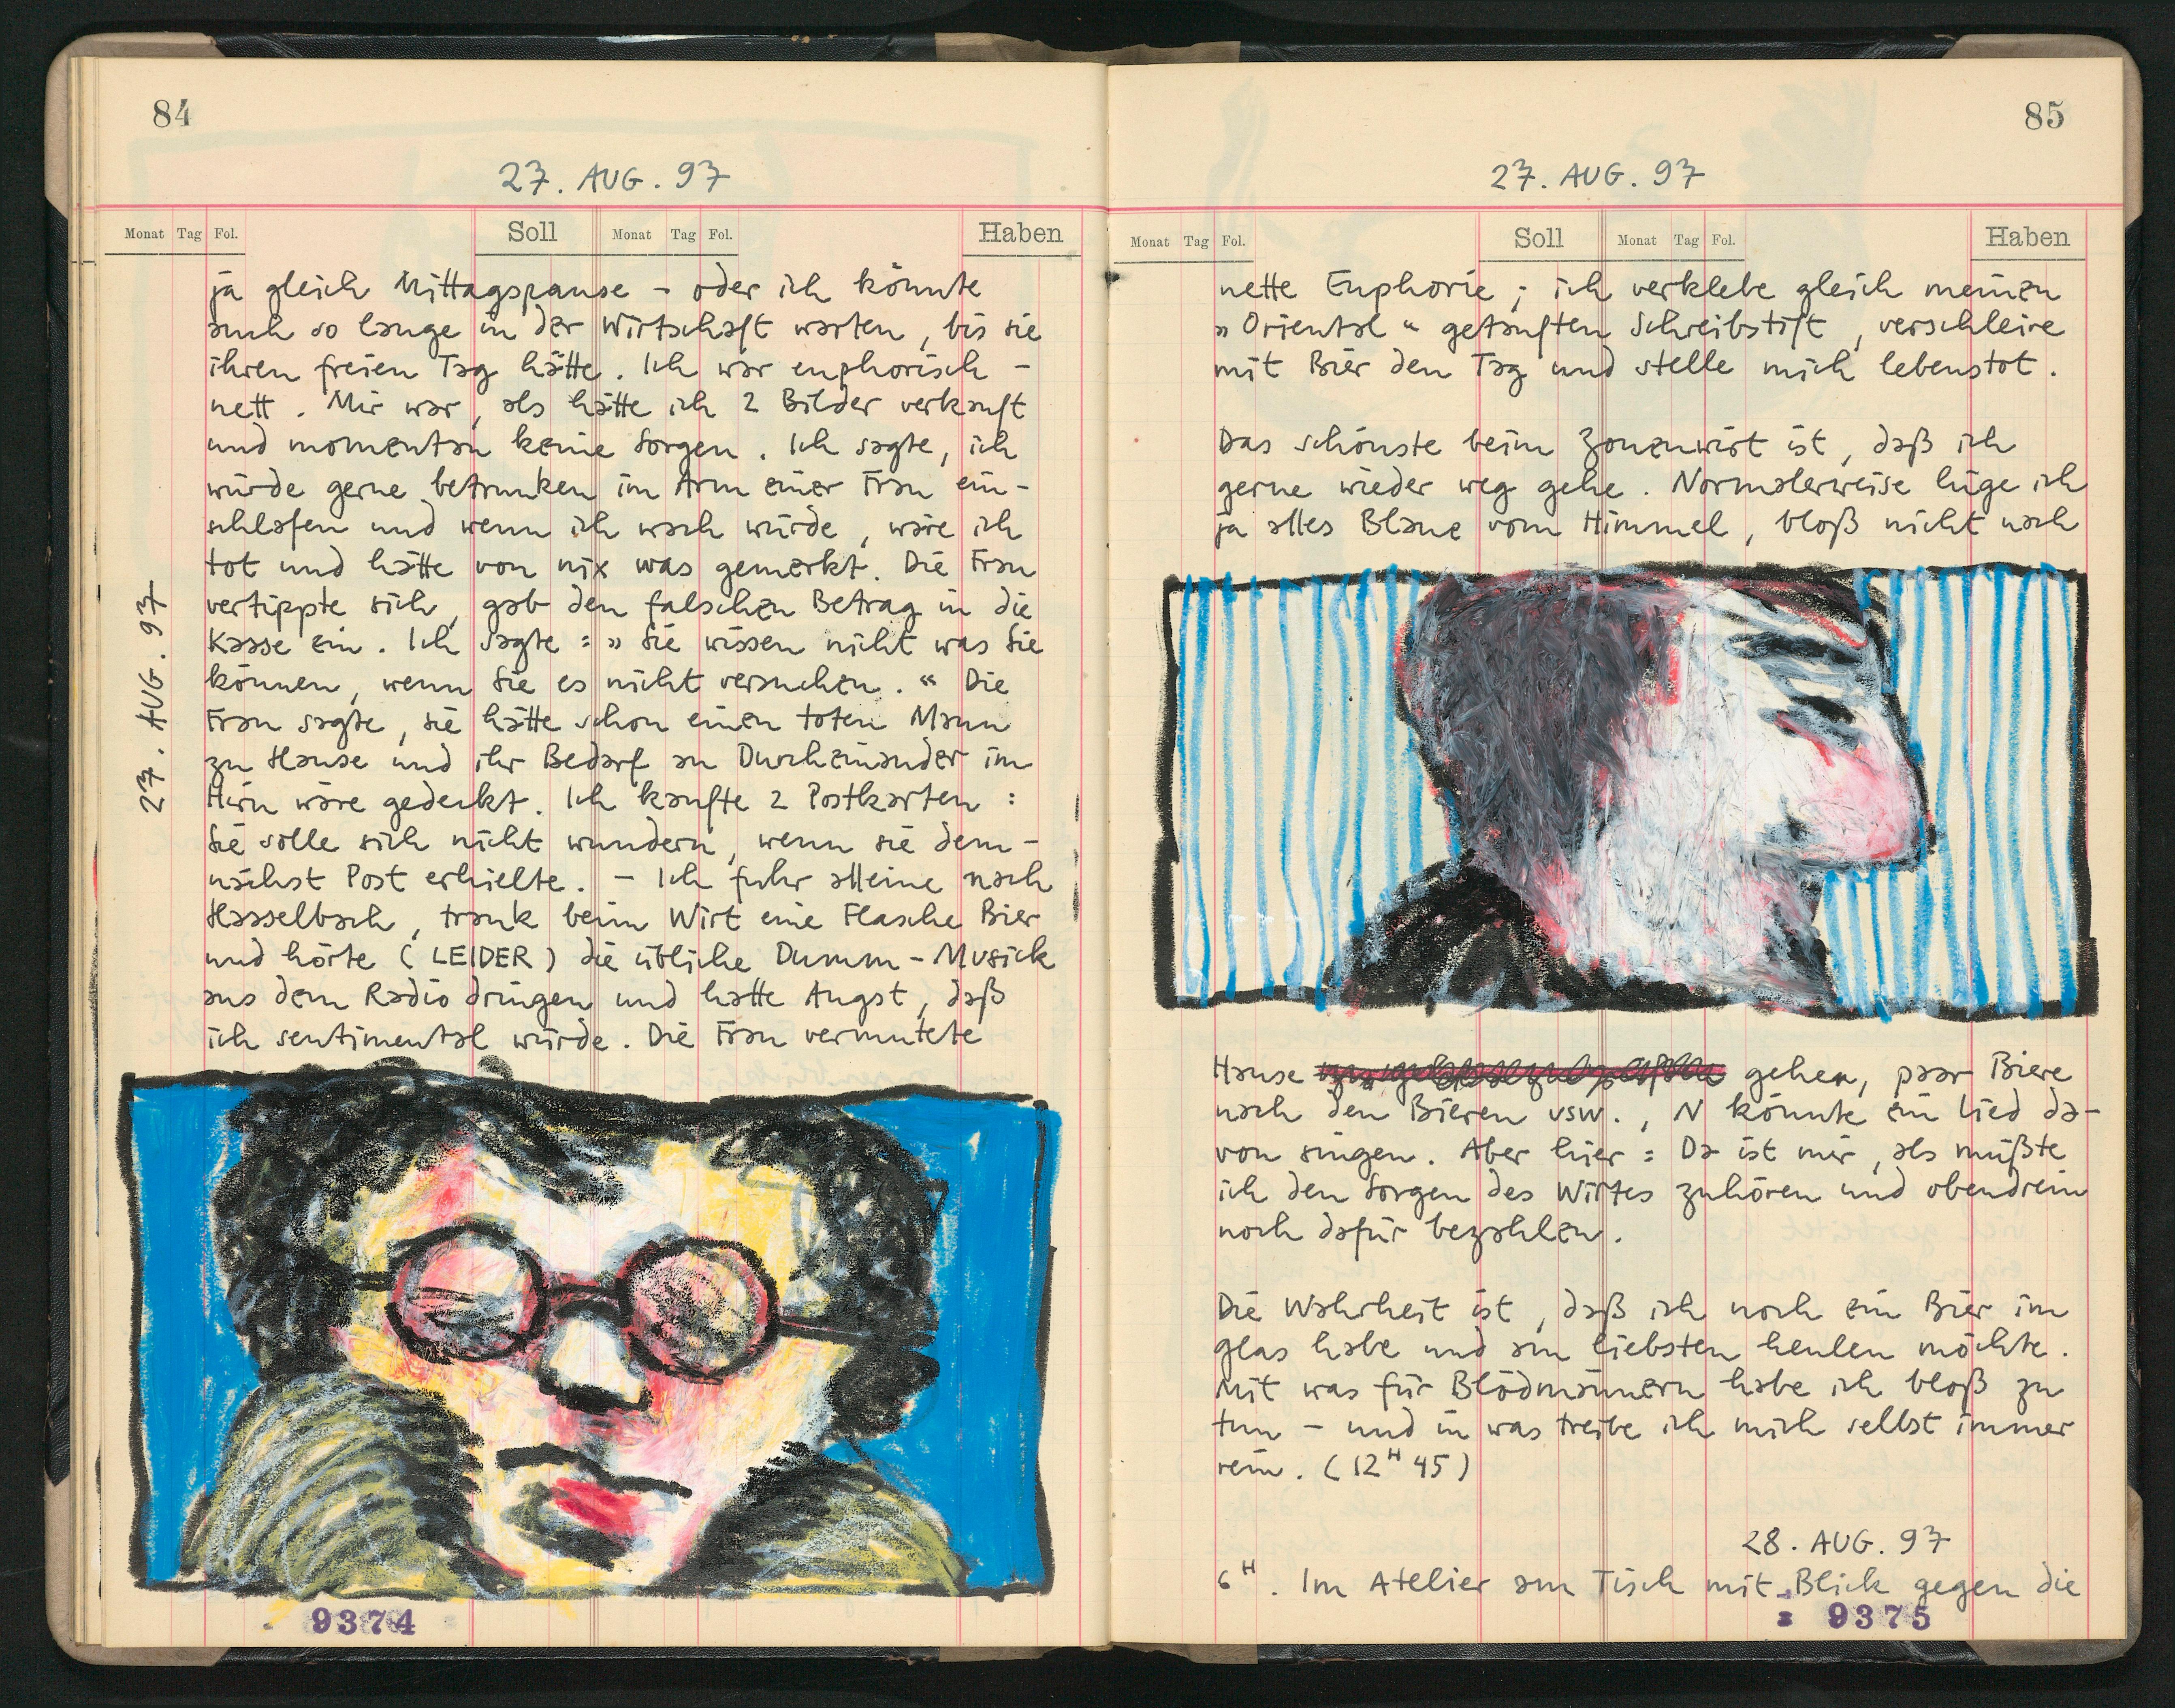 84
27. AUG. 97
Monat Tag Fol. Soll Monat Tag Fol. Haben
ja gleich Mittagspause – oder ich könnte
auch so lange in der Wirtschaft warten, bis sie
ihren freien Tag hätte. Ich war euphorisch –
nett. Mir war, als hätte ich 2 Bilder verkauft
und momentan keine Sorgen. Ich sagte, ich
würde gerne betrunken im Arm einer Frau ein-
schlafen und wenn ich wach würde, wäre ich
tot und hätte von nix was gemerkt. Die Frau
vertippte sich, gab den falschen Betrag in die
Kasse ein. Ich sagte: » Sie wissen nicht was Sie
können, wenn Sie es nicht versuchen. “ Die
Frau sagte, sie hätte schon einen toten Mann
zu Hause und ihr Bedarf an Durcheinander im
Hirn wäre gedeckt. Ich kaufte 2 Postkarten:
Sie solle sich nicht wundern, wenn sie dem-
nächst Post erhielte. – Ich fuhr alleine nach
Hasselbach, trank beim Wirt eine Flasche Bier
und hörte (LEIDER) die übliche Dumm-Musick
aus dem Radio dringen und hatte Angst, daß
ich sentimental würde. Die Frau vermutete
27. AUG. 97
9374
85
27. AUG. 97
Monat Tag Fol. Soll Monat Tag Fol. Haben
nette Euphorie; ich verklebe gleich meinen
» Oriental “ getauften Schreibstift, verschleire
mit Bier den Tag und stelle mich lebenstot.
Das schönste beim Zonenwirt ist, daß ich
gerne wieder weg gehe. Normalerweise lüge ich
ja alles Blaue vom Himmel, bloß nicht nach
Hause gehen, paar Biere
nach den Bieren usw., N könnte ein Lied da-
von singen. Aber hier: Da ist mir, als müßte
ich den Sorgen des Wirtes zuhören und obendrein
noch dafür bezahlen.
Die Wahrheit ist, daß ich noch ein Bier im
Glas habe und am liebsten heulen möchte.
Mit was für Blödmännern habe ich bloß zu
tun – und in was treibe ich mich selbst immer
rein. (12H 45)
28. AUG. 97
6H. Im Atelier am Tisch mit Blick gegen die
9375